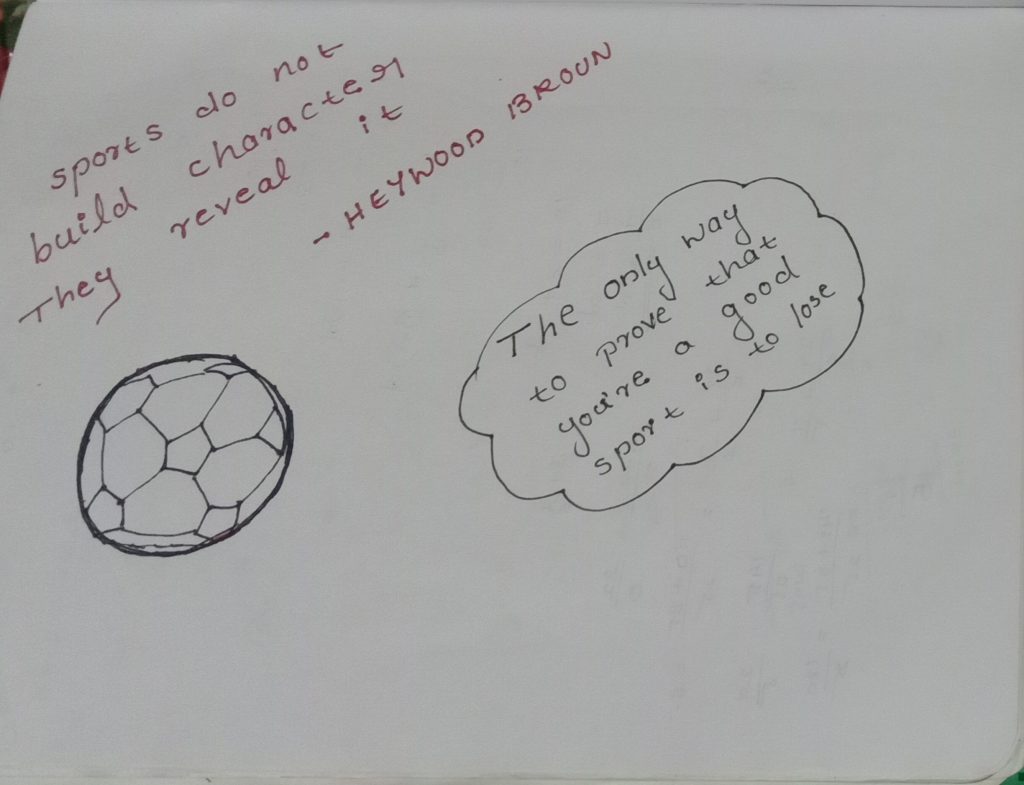 sports do not
build character
They reveal it
- HEYWOOD BROUN
The only way
to prove that
you're a good
sport is to lose